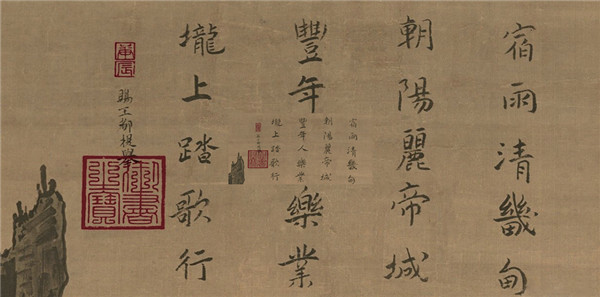 宿雨清畿甸
朝陽麗帝城
豐年樂業
壠上踏歌行
庚辰
賜王都提舉
御書之寶
宿雨清畿甸
朝陽麗帝城
豐年人樂業
壠上踏歌行